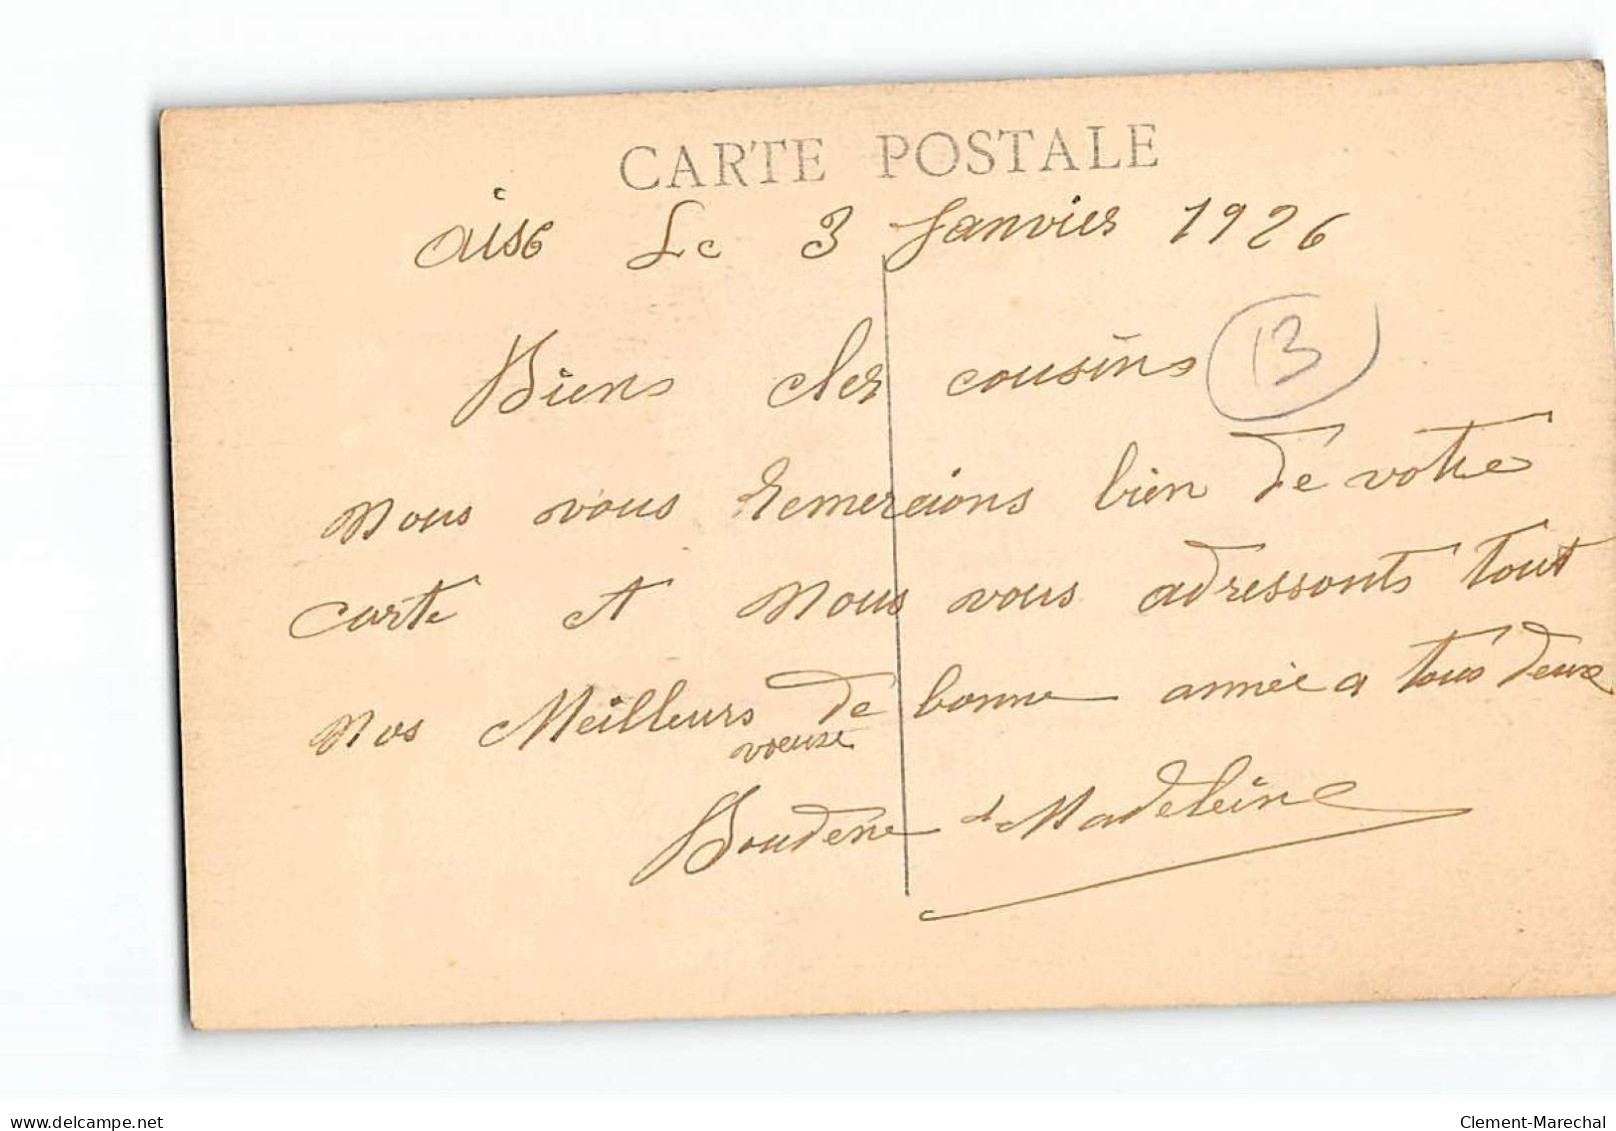 CARTE POSTALE
Le 3 Janvier 1926
Biens cher cousins
13
Nous vous remercions bien de votre
carte et Nous vous adressonts tout
Nos Meilleurs de bonne année a tous deux
voeuxe
et Madeleine
delcampe.net
Clement-Marechal